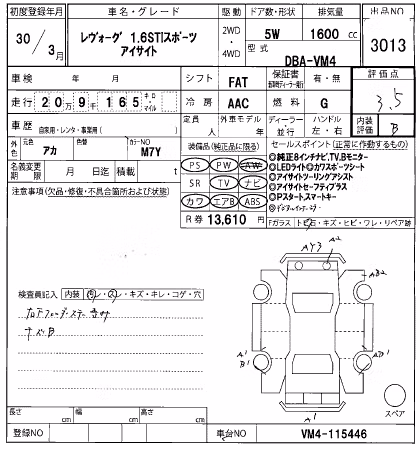 初度登録年月
車名・グレード
駆動
ドア数・形状
排気量
出品NO
30 / 3月
レヴォーグ 1.6STIスポーツ
アイサイト
2WD
・
4WD
5W
1600 cc
型式
DBA-VM4
3013
車検 年 月
シフト
FAT
保証書
有・無
評価点
走行 20万9千165 キロ・マイル
冷房
AAC
燃料
G
3.5
車歴
自家用・レンタ・事業用( )
定員
人
外車モデル
年
ディーラー・並行
ハンドル
左・右
内装評価
B
外色
元色
アカ
色替
カラーNO
M7Y
装備品(純正品に限る)
セールスポイント(正常に作動するもの)
名義変更期限
月 日迄
積載 t
PS PW AW
SR TV ナビ
カワ エアB ABS
◎純正8インチナビ.TV.Bモニター
◎LEDライト◎ガワスポーツシート
◎アイサイトツーリングアシスト
◎アイサイトセーフティプラス
◎Pスタート.スマートキー
注意事項(欠品・修復・不具合箇所および状態)
R券 13,610 円
Fガラス トビ石・キズ・ヒビ・ワレ・リペア跡
AY3
A2
AB2
検査員記入
内装
汚レ・スレ・キズ・キレ・コゲ・穴
ナビB
A1
B1
A1
スペア
長さ cm
幅 cm
高さ cm
登録NO
車台NO
VM4-115446